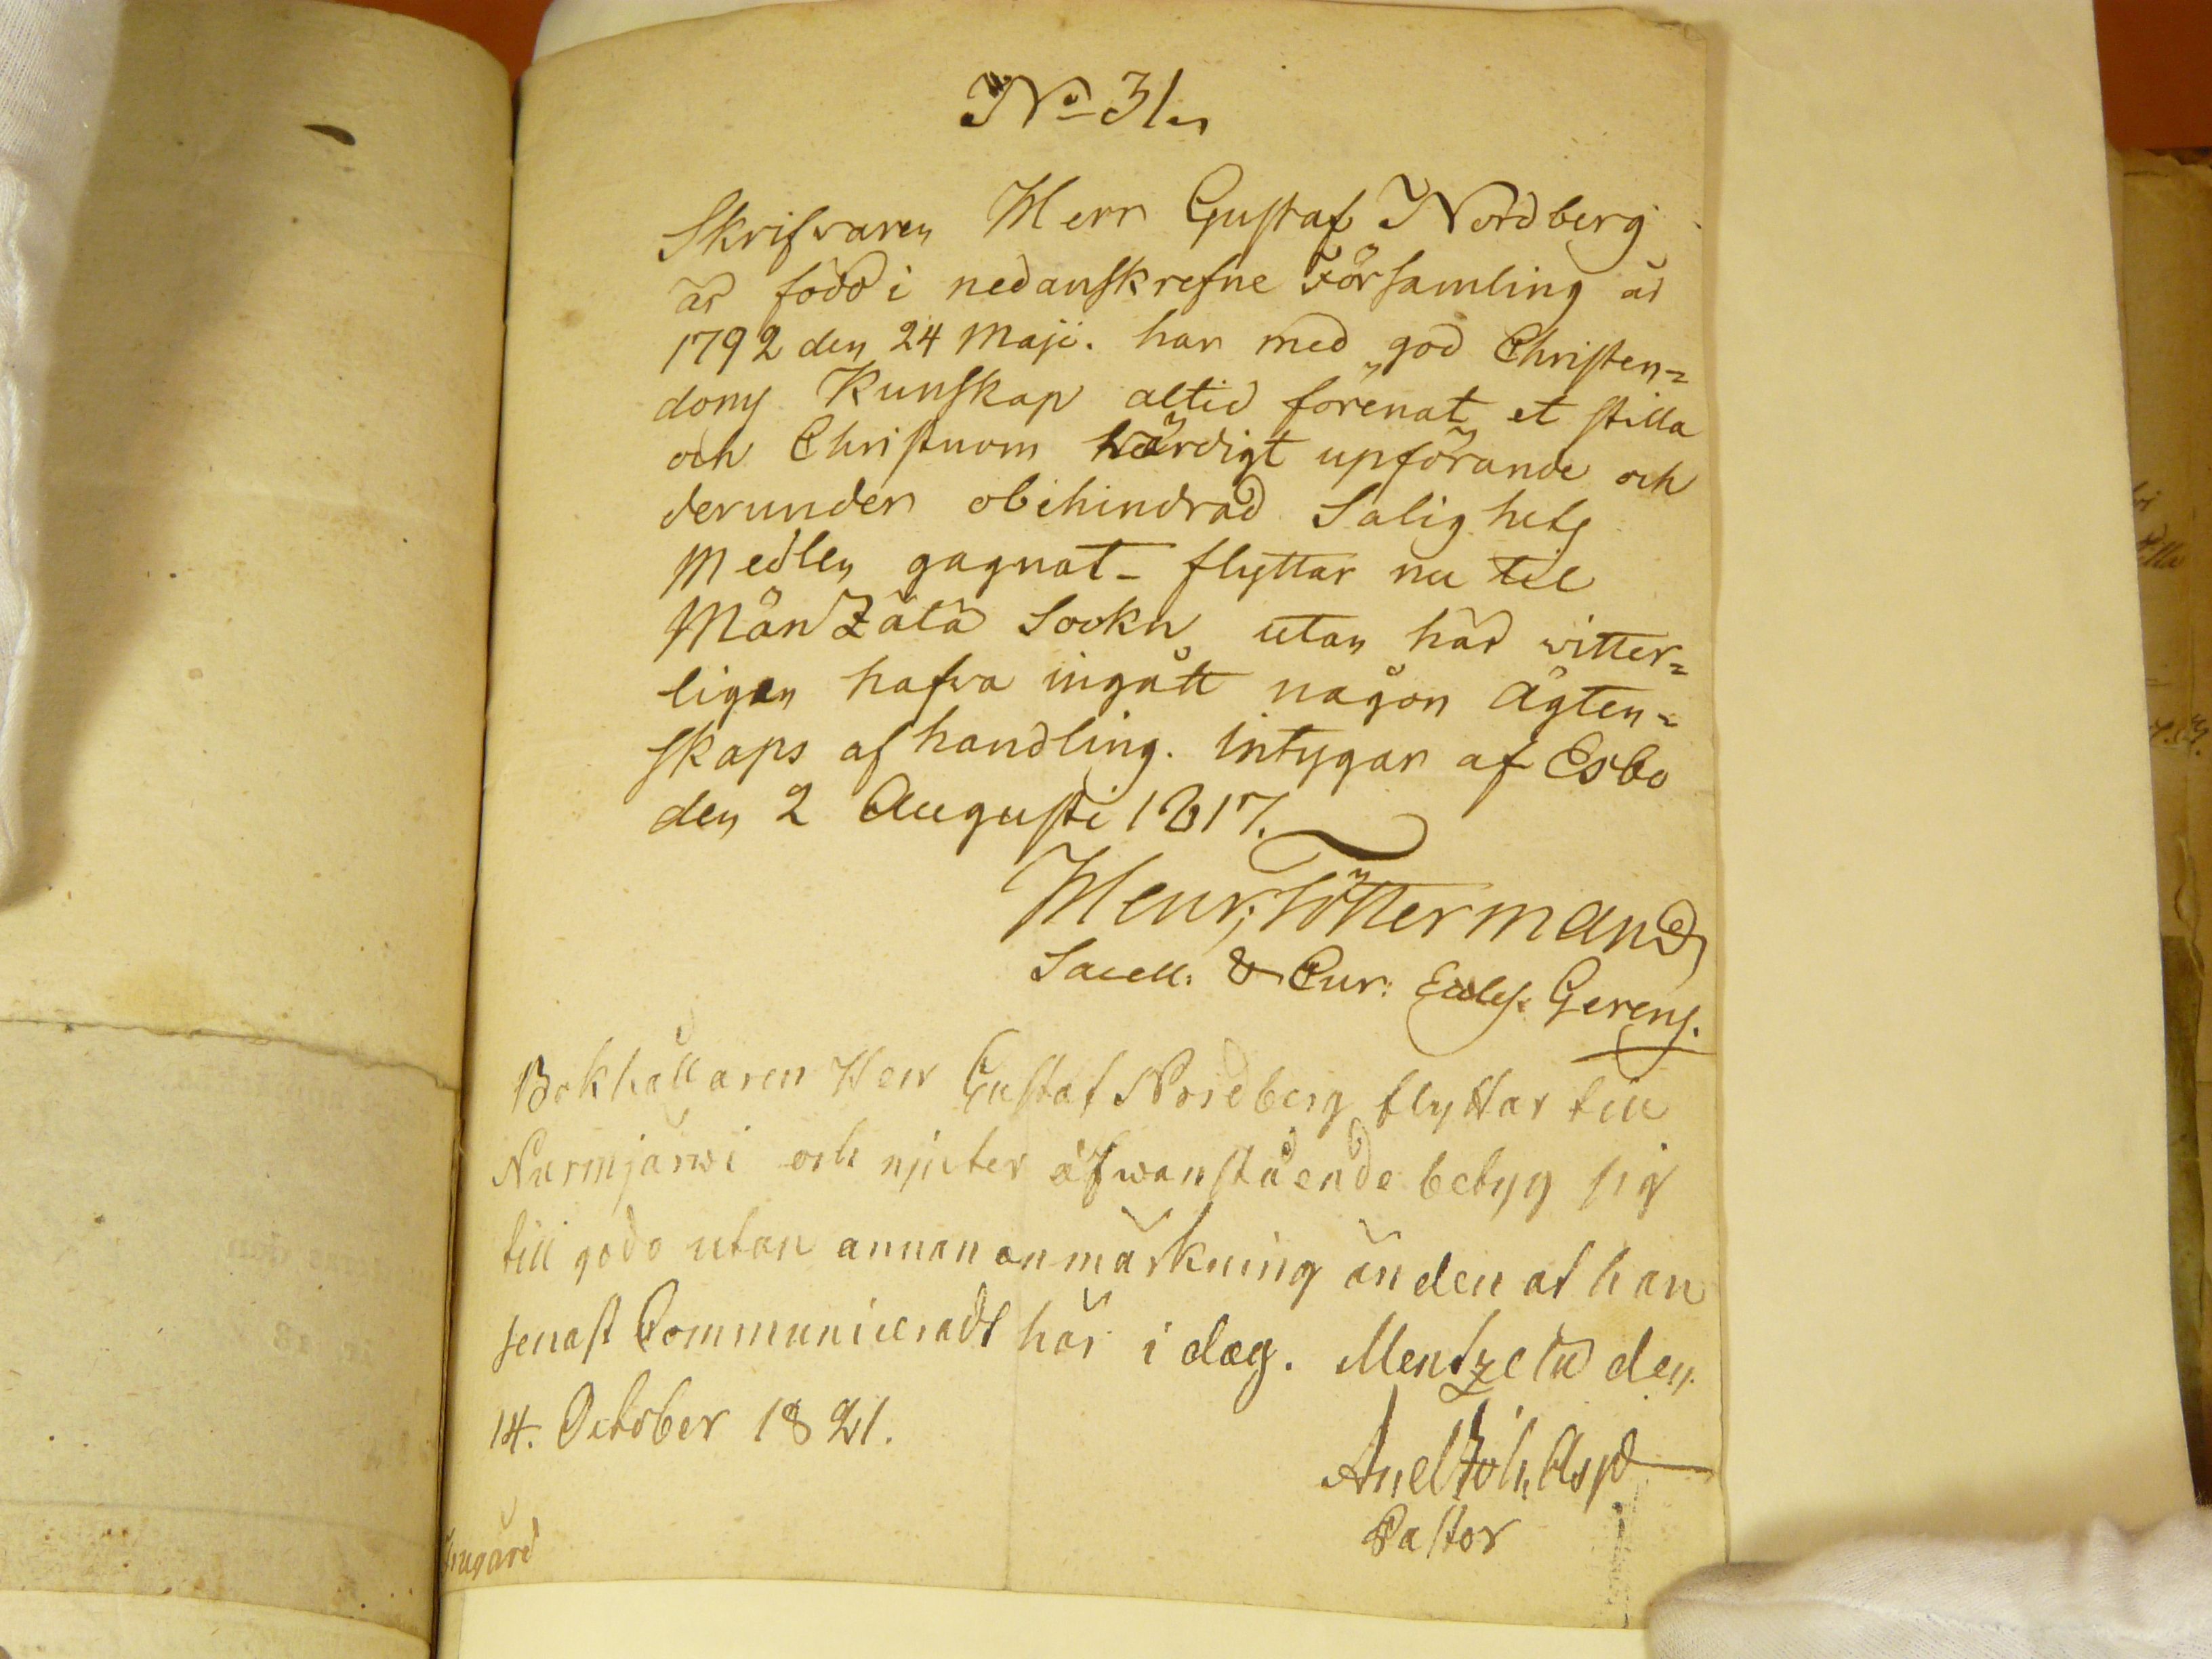 No 31.
Skrifvaren Herr Gustaf Nordberg
är född i nedanskrefne Församling år
1792 den 24 Maji. har med god Christen=
doms Kunskap altid förenat et stilla
och Christnom värdigt upförande och
derunder obehindrad Salighets
Medlen gagnat - flyttar nu til
Mänzälä Sockn utan här witter=
ligen hafva ingått någon Ägten=
skaps afhandling. intygar af Esbo
den 2 Augusti 1817.
Henr: Töttermand
Sacell: & Cur: Eccles: Gerens.
Bokhållaren Herr Gustaf Nordberg flyttar till
Nurmjärwi och njuter åfwanstående betyg sig
till godo utan annan anmärkning än den at han
senast Communiceradt här i dag. Mentzelä den
14. October 1821.
Pastor